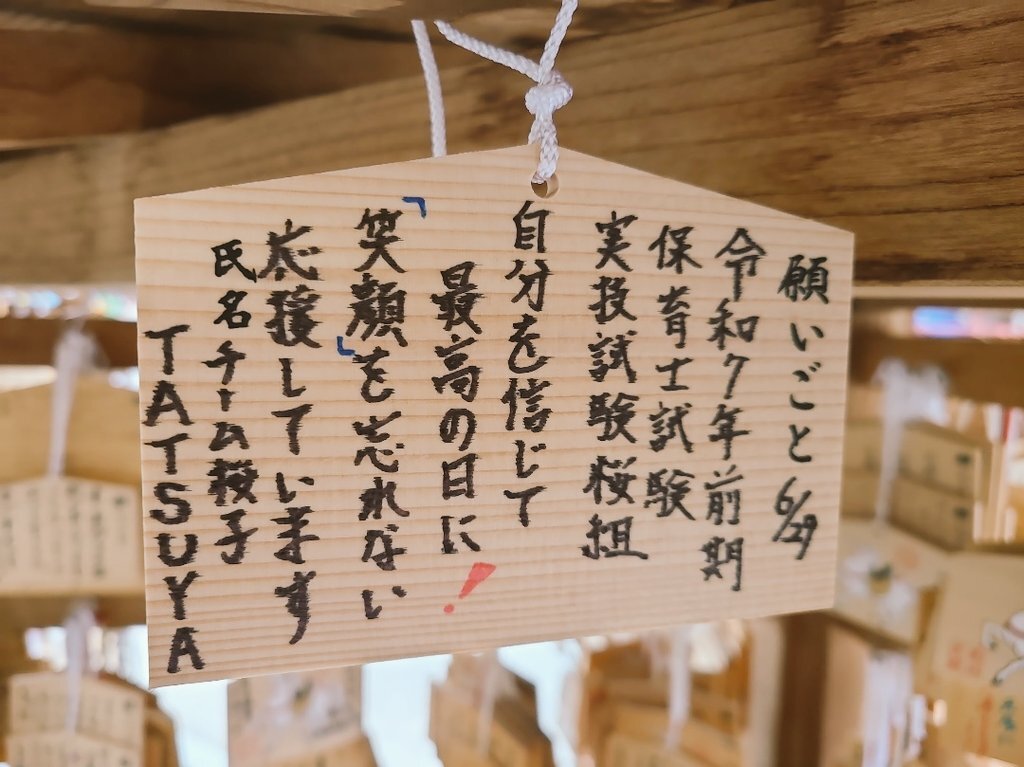 願いごと 6/29
令和7年前期
保育士試験
実技試験桜組
自分を信じて
最高の日に!
「笑顔」を忘れない
応援しています
氏名チーム桜子
TATSUYA